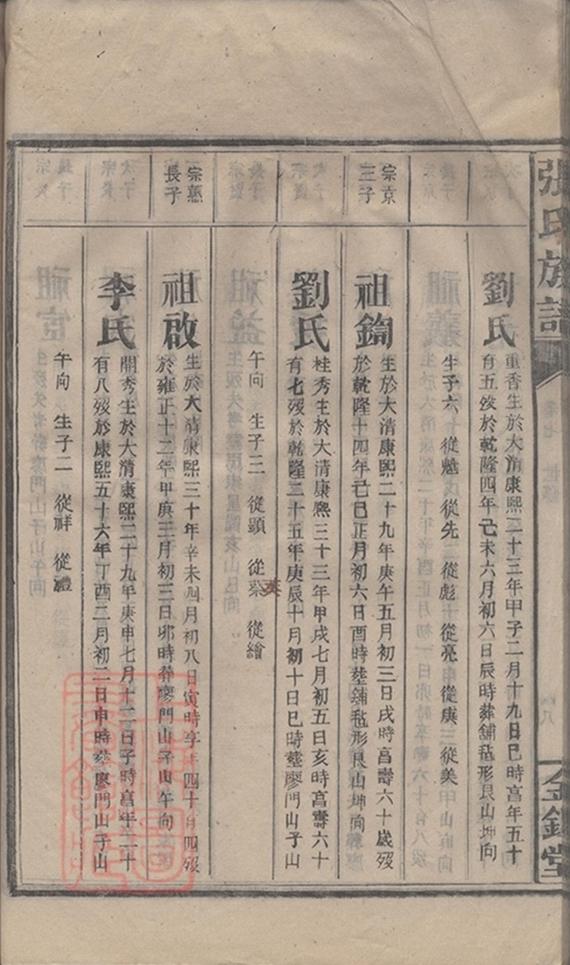 張氏族譜
金鑑堂
劉氏
重香生於大清康熙二十三年甲子二月十九日巳時富年五十
有五歿於乾隆四年己未六月初六日辰時葬舖毡形艮山坤向
生子六 從魁 從先 從彪 從亮 從庚 從美
宗京
三子
祖鑰
生於大清康熙二十九年庚午五月初三日戌時富壽六十歲歿
於乾隆十四年己巳正月初六日酉時塟舖毡形艮山坤向
劉氏
桂秀生於大清康熙三十三年甲戌七月初五日亥時富壽六十
有七歿於乾隆二十五年庚辰十月初十日巳時塟廖門山子山
午向 生子三 從顯 從 從繪
宗熹
長子
祖啟
生於大清康熙三十年辛未四月初八日寅時享年四十四歿
於雍正十二年甲寅三月初三日卯時葬廖門山子山午向
李氏
閏秀生於大清康熙二十九年庚申七月十二日子時富年二十
有八歿於康熙五十六年丁酉二月初二日申時塟廖門山子山
午向 生子二 從祥 從禮